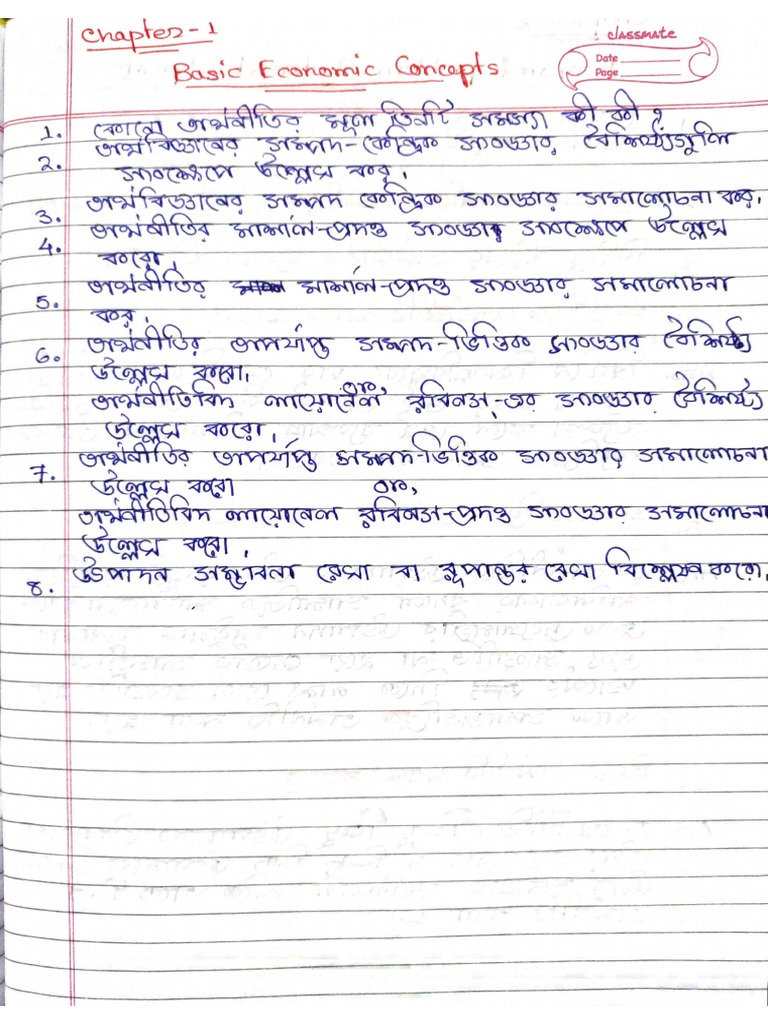 Chapter - 1
classmate
Date
Page
Basic Economic Concepts
1. কোনো অর্থনীতির মূল তিনটি সমস্যা কী কী ?
2. অর্থবিজ্ঞানের সম্পদ-কেন্দ্রিক সংজ্ঞার বৈশিষ্ট্যগুলি
সংক্ষেপে উল্লেখ কর।
3. অর্থবিজ্ঞানের সম্পদ কেন্দ্রিক সংজ্ঞার সমালোচনা কর।
4. অর্থনীতির মার্শাল-প্রদত্ত সংজ্ঞার সংক্ষেপে উল্লেখ
করো।
5. অর্থনীতির মার্শাল-প্রদত্ত সংজ্ঞার সমালোচনা
কর।
6. অর্থনীতির অপর্যাপ্ত সম্পদ-ভিত্তিক সংজ্ঞার বৈশিষ্ট্য
উল্লেখ করো।
or,
অর্থনীতিবিদ লায়োনেল রবিনস-এর সংজ্ঞার বৈশিষ্ট্য
উল্লেখ করো।
7. অর্থনীতির অপর্যাপ্ত সম্পদ-ভিত্তিক সংজ্ঞার সমালোচনা
উল্লেখ করো or,
অর্থনীতিবিদ লায়োনেল রবিনস-প্রদত্ত সংজ্ঞার সমালোচনা
উল্লেখ করো।
8. উৎপাদন সম্ভাবনা রেখা বা রূপান্তর রেখা বিশ্লেষণ করো।